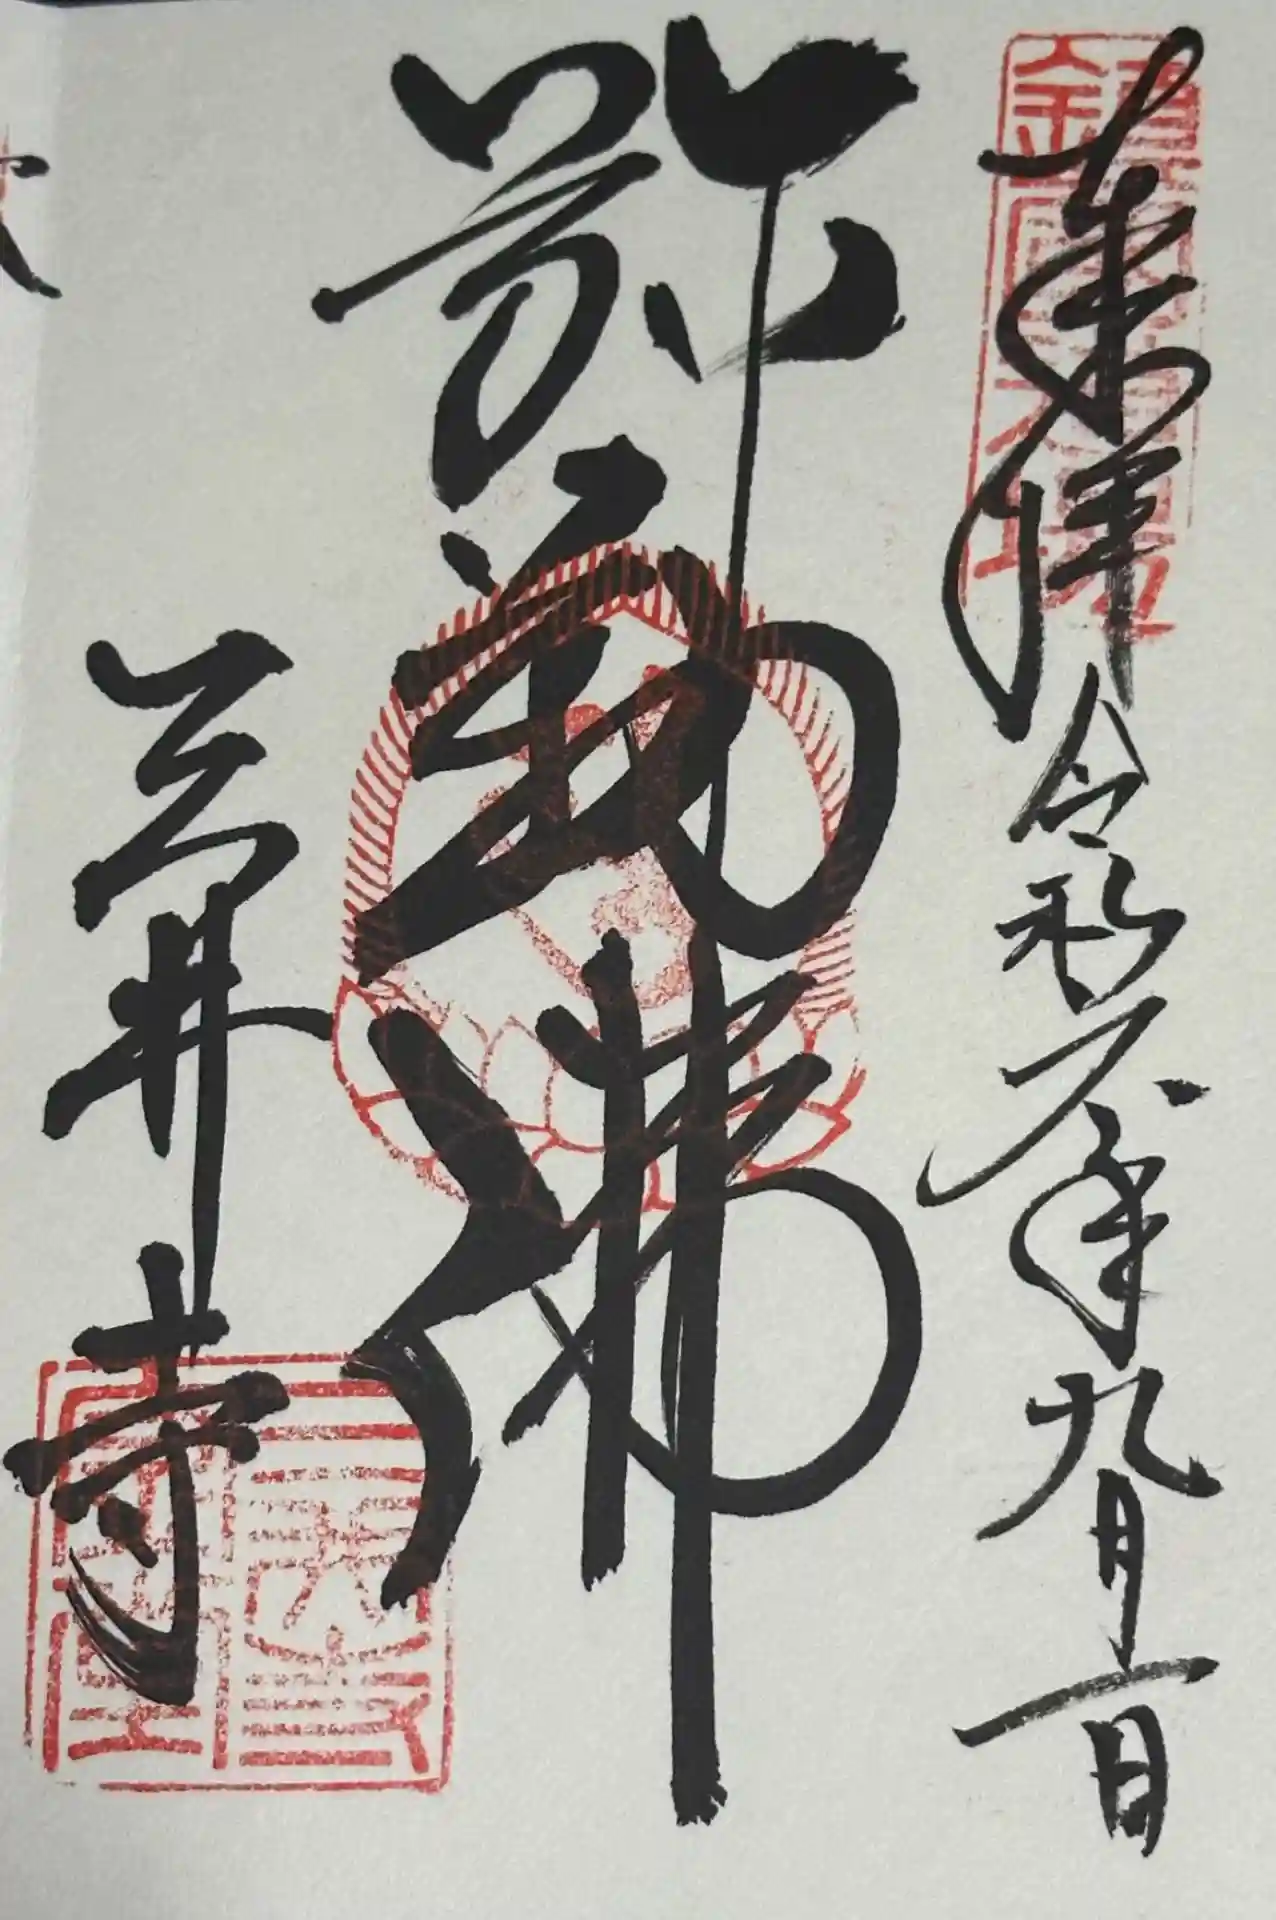 奉拝 令和六年九月一日
弥勒佛
三井寺